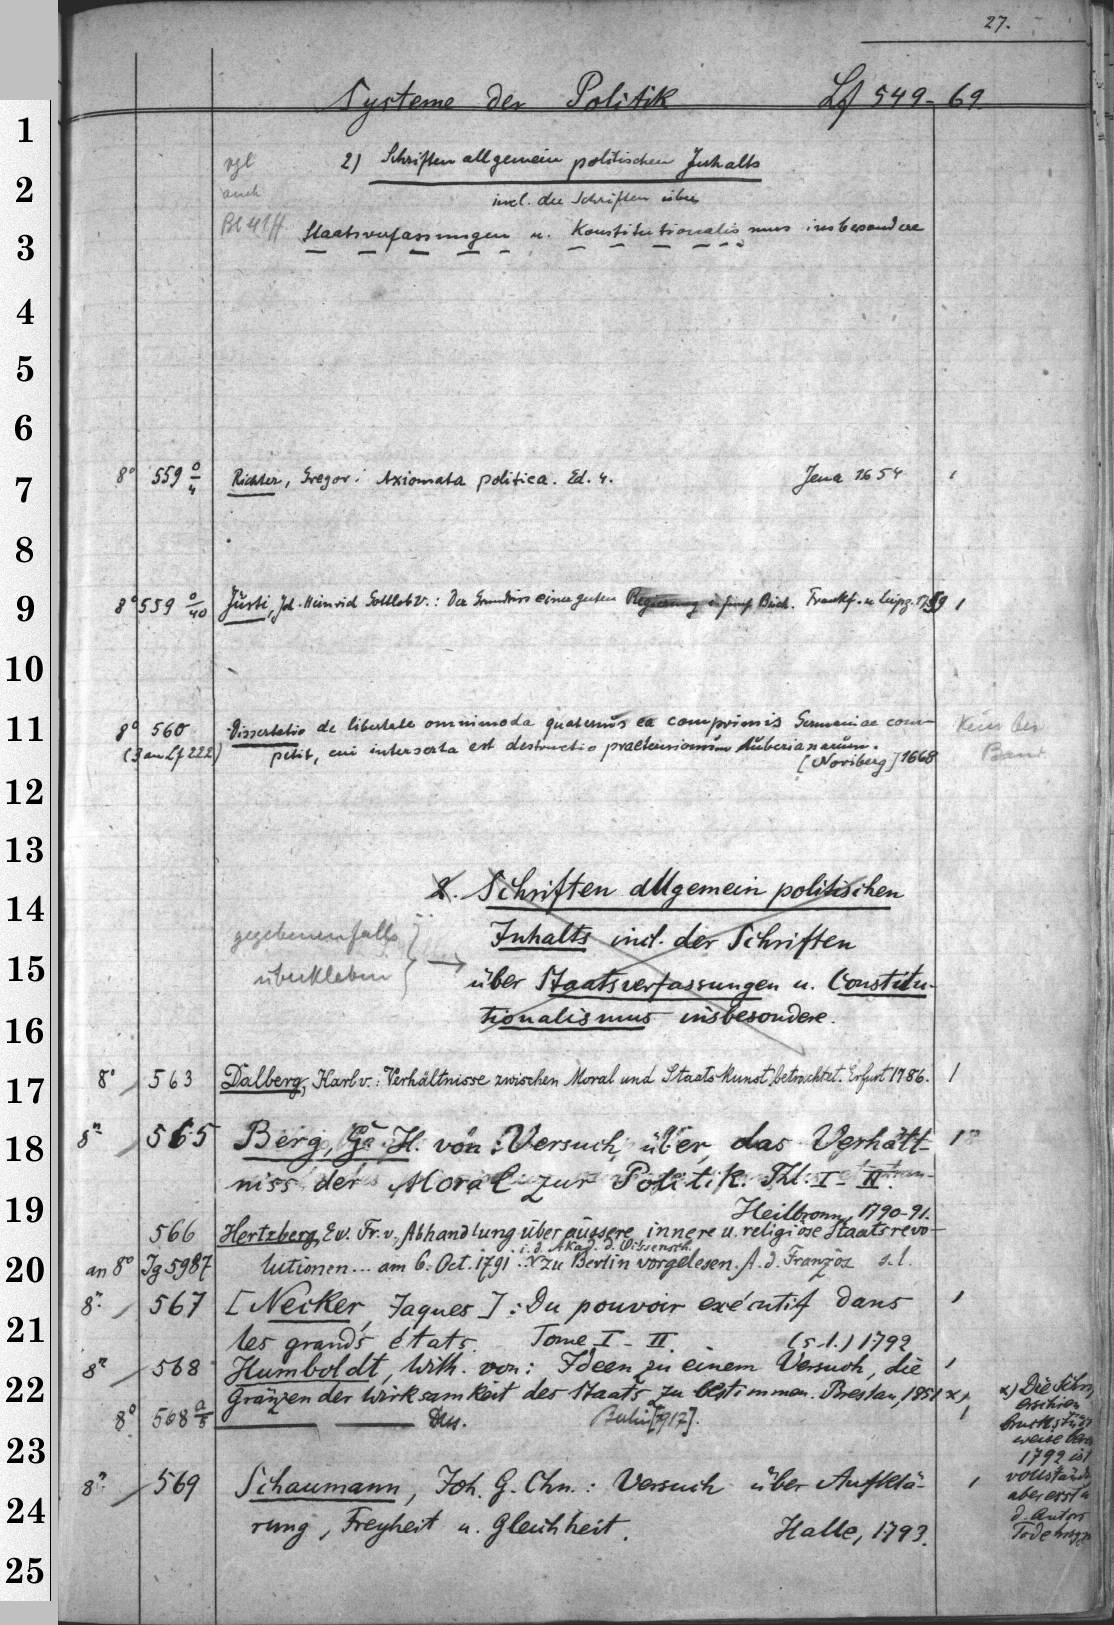 27.
Systeme der Politik Lf 549-69
vgl 2) Schriften allgemein politischen Inhalts
auch incl. der Schriften über
Bl 41ff Staatsverfassungen u. Konstitutionalismus insbesondere
8° 559 o/4 Richter, Gregor: Axiomata politica. Ed. 4. Jena 1654 1
8° 559 o/40 Justi, Joh. Heinrich Gottlob v.: Der Grundriss einer guten Regierung in fünf Büch. Frankf. u. Leipz. 1759 1
8° 560 Dissertatio de libertate omnimoda quatenus ea comprimis Germaniae com-
(3 an Lf 222) petit, cui interserta est destructio praetensionum
[Noriberg] 1668
2. Schriften allgemein politischen
gegebenenfalls Inhalts incl. der Schriften
überkleben → über Staatsverfassungen u. Constitu-
tionalismus insbesondere.
8° 563 Dalberg, Karl v.: Verhältnisse zwischen Moral und Staatskunst betrachtet. Erfurt 1786. 1
8° 565 Berg, G. H. von: Versuch über das Verhält-
niss der Moral zur Politik. Thl. I - II.
Heilbronn, 1790-91.
566 Hertzberg, Ew. Fr. v., Abhandlung über äussere, innere u. religiöse Staatsrevo-
i. d. Akad. d. Wissensch.
an 8° Jg 5987 lutionen... am 6. Oct. 1791 zu Berlin vorgelesen. A. d. Französ s. l.
8° 567 [Necker, Jaques]: Du pouvoir exécutif dans 1
les grands états. Tome I - II. (s. l.) 1792
8° 568 Humboldt, Wilh. von: Ideen zu einem Versuch, die 1
Gränzen der Wirksamkeit des Staats zu bestimmen. Breslau, 1851 α)
8° 568 a/8 Dass. Berlin [1917]. 1
8° 569 Schaumann, Joh. G. Chn.: Versuch über Aufklä- 1
rung, Freyheit u. Gleichheit. Halle, 1793.
α) Die Schr.
erschien
bruchstück
weise
1792 ist
vollständ
aber erst
d. Autors
Tode
1
2
3
4
5
6
7
8
9
10
11
12
13
14
15
16
17
18
19
20
21
22
23
24
25